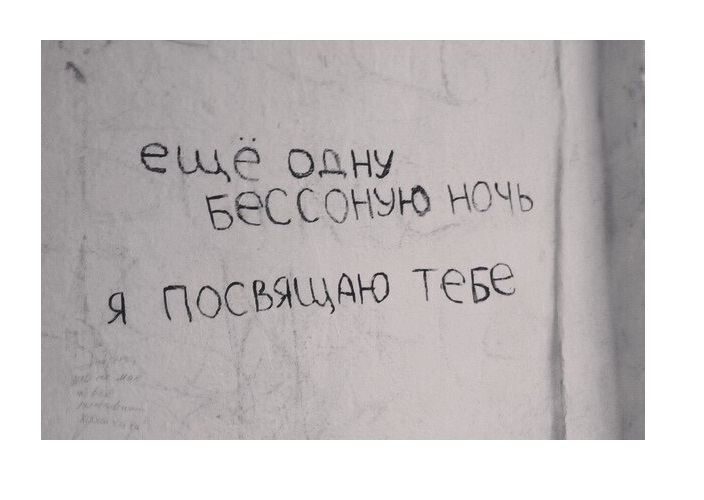 ещё одну
бессоную ночь
я посвящаю тебе